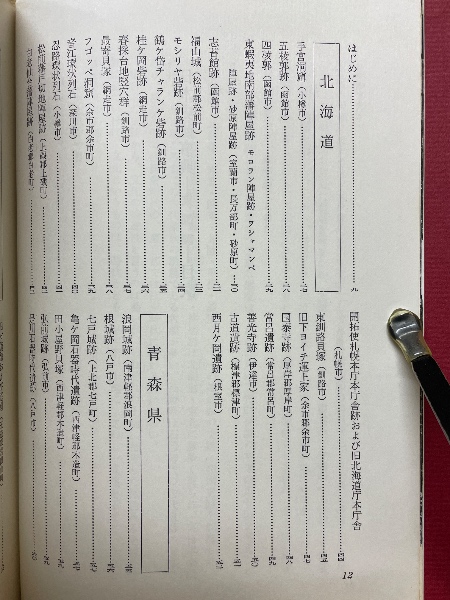 はじめに
北海道
手宮洞窟（小樽市）
五稜郭跡（函館市）
四稜郭（函館市）
東蝦夷地南部藩陣屋跡 モロラン陣屋跡・ヲシャマンベ
陣屋跡・砂原陣屋跡（室蘭市・長万部町・砂原町）
志苔館跡（函館市）
福山城（松前郡松前町）
モシリヤ砦跡（釧路市）
鶴ケ岱チャランケ砦跡（釧路市）
桂ケ岡砦跡（網走市）
春採台地竪穴群（釧路市）
最寄貝塚（網走市）
フゴッペ洞窟（余市郡余市町）
音江環状列石（深川市）
忍路環状列石（小樽市）
松前藩戸切地陣屋跡（上磯郡上磯町）
白老仙台藩陣屋跡（白老郡白老町）
開拓使札幌本庁本庁舎跡および旧北海道庁本庁舎
（札幌市）
東釧路貝塚（釧路市）
旧下ヨイチ運上家（余市郡余市町）
国泰寺跡（厚岸郡厚岸町）
常呂遺跡（常呂郡常呂町）
善光寺跡（伊達市）
古道遺跡（標津郡標津町）
西月ケ岡遺跡（根室市）
青森県
浪岡城跡（南津軽郡浪岡町）
根城跡（八戸市）
七戸城跡（上北郡七戸町）
亀ケ岡石器時代遺跡（西津軽郡木造町）
田小屋野貝塚（西津軽郡木造町）
弘前城跡（弘前市）
12